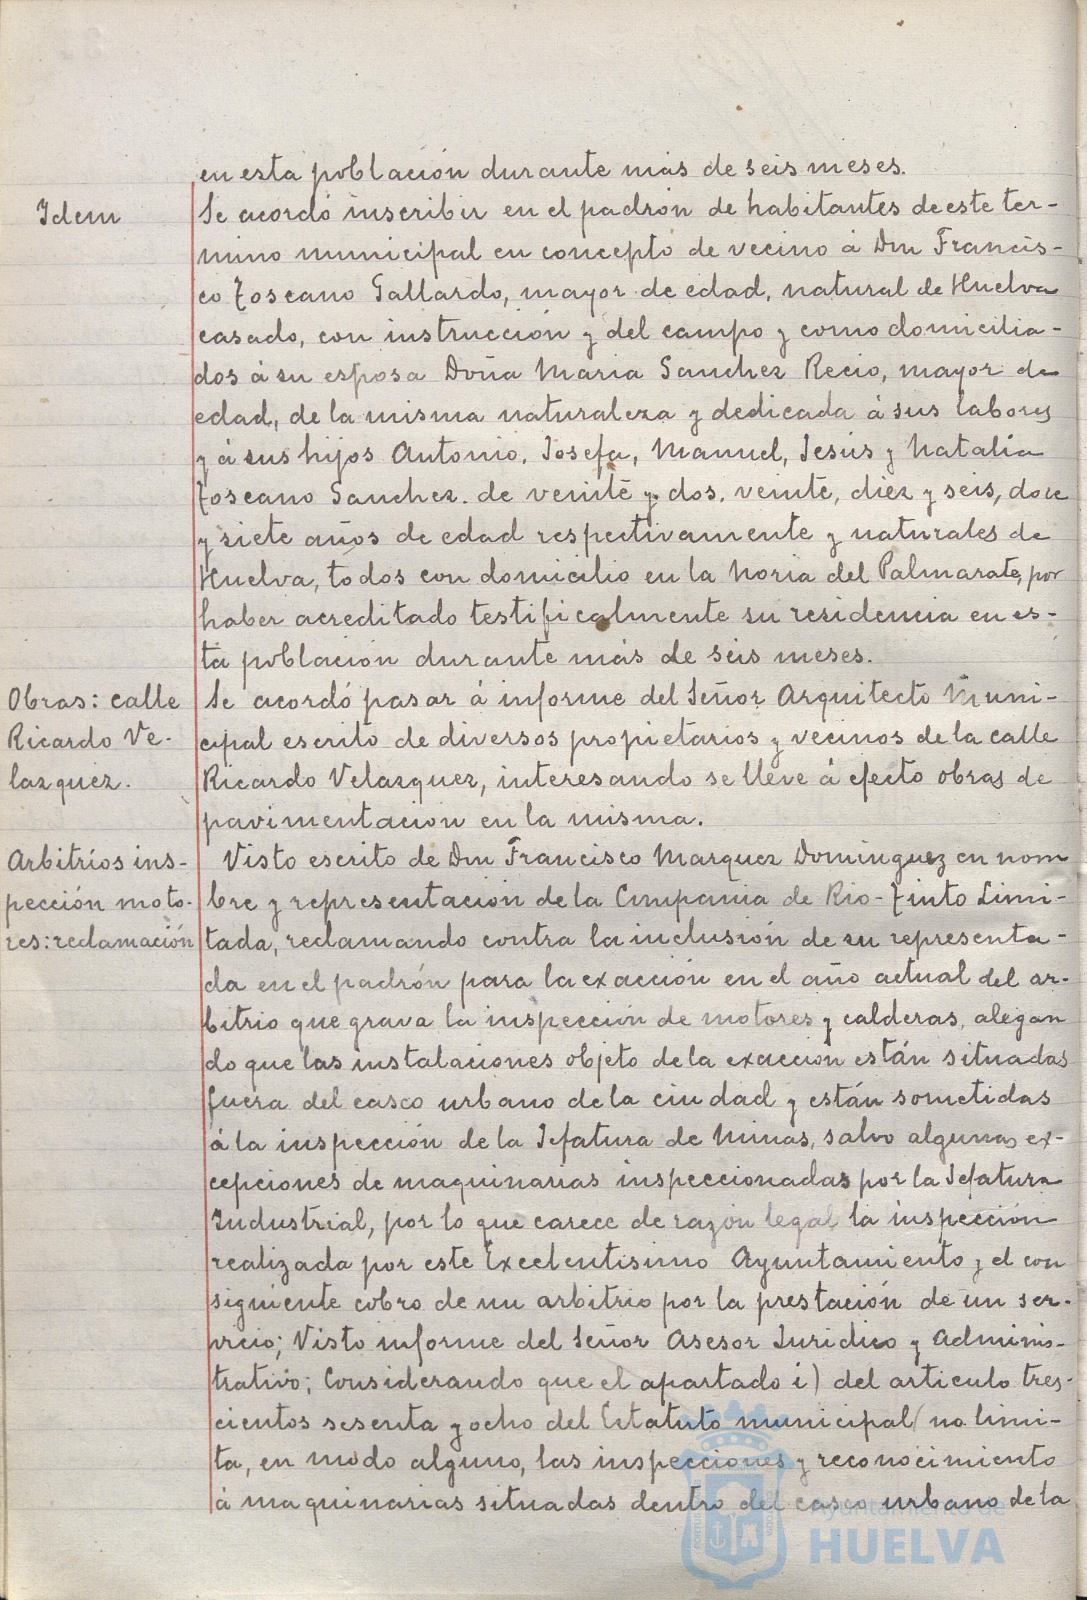 en esta población durante más de seis meses.
Idem
Se acordó inscribir en el padrón de habitantes de este ter-
mino municipal en concepto de vecino á Don Francis-
co Toscano Gallardo, mayor de edad, natural de Huelva
casado, con instrucción y del campo y como domicilia-
dos á su esposa Doña Maria Sanchez Recio, mayor de
edad, de la misma naturaleza y dedicada á sus labores
y á sus hijos Antonio, Josefa, Manuel, Jesús y Natalia
Toscano Sanchez. de veinte y dos, veinte, diez y seis, doce
y siete años de edad respectivamente y naturales de
Huelva, todos con domicilio en la Noria del Palmarate, por
haber acreditado testificalmente su residencia en es-
ta población durante más de seis meses.
Obras: calle
Ricardo Ve-
lazquez.
Se acordó pasar á informe del Señor Arquitecto Muni-
cipal escrito de diversos propietarios y vecinos de la calle
Ricardo Velazquez, interesando se lleve á efecto obras de
pavimentación en la misma.
Arbitrios ins-
pección moto-
res: reclamación
Visto escrito de Don Francisco Marquez Dominguez en nom
bre y representación de la Compañia de Rio-Tinto Limi-
tada, reclamando contra la inclusión de su representa-
da en el padrón para la exacción en el año actual del ar-
bitrio que grava la inspección de motores y calderas, alegan
do que las instalaciones objeto de la exacción están situadas
fuera del casco urbano de la ciudad y están sometidas
á la inspección de la Jefatura de Minas, salvo algunas ex-
cepciones de maquinarias inspeccionadas por la Jefatura
Industrial, por lo que carece de razón legal la inspección
realizada por este Excelentisimo Ayuntamiento y el con
siguiente cobro de un arbitrio por la prestación de un ser-
vicio; Visto informe del Señor Asesor Juridico y Adminis-
trativo; Considerando que el apartado i) del articulo tres-
cientos sesenta y ocho del Estatuto municipal no limi-
ta, en modo alguno, las inspecciones y reconocimiento
á maquinarias situadas dentro del casco urbano de la
Ayuntamiento de
HUELVA